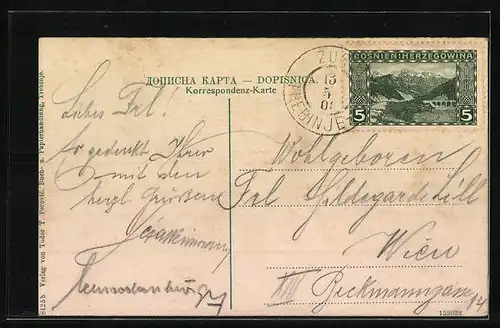 ДОПИСНА КАРТА — DOPISNICA.
Korrespondenz-Karte
BOSNIEN-HERZEGOWINA
5 5
TREBINJE
13
5
Liebes Frl!
Er gedenkt Ihrer
mit den
herzl. Grüßen
Wohlgeboren
Frl Hildegarde Lill
Wien
XIII Beckmanngasse 14
8125b Verlag von Todor T. Buch- u. Papierhandlung, Trebinje.
152023